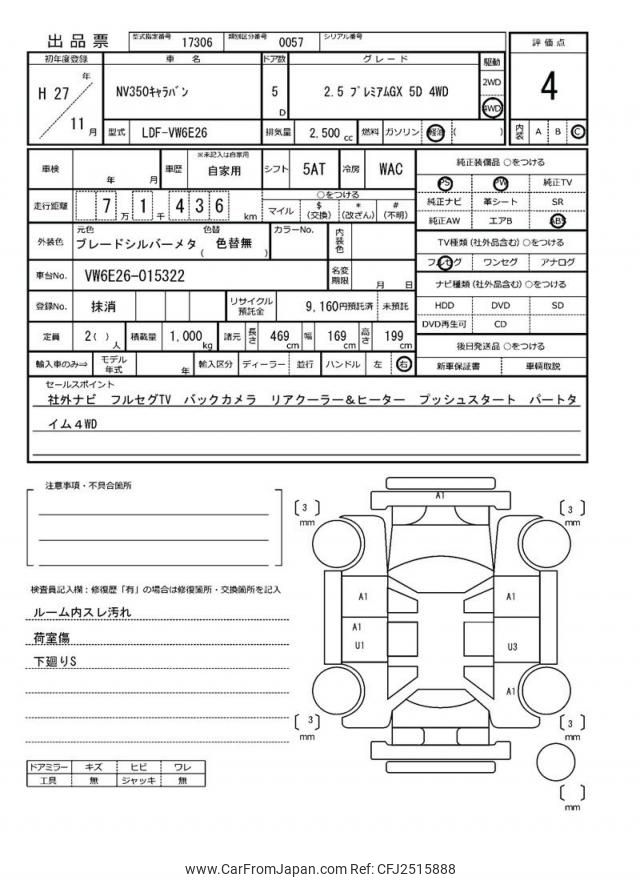 出品票 型式指定番号 17306 類別区分番号 0057 シリアル番号
初年度登録 車 名 ドア数 グレード 駆動 評価点
H 27 年 11 月 NV350キャラバン 5 D 2.5 プレミアムGX 5D 4WD 2WD 4WD 4
型式 LDF-VW6E26 排気量 2,500 cc 燃料 ガソリン 軽油 ( ) 内装 A B C
車検 年 月 車歴 ※未記入は自家用 自家用 シフト 5AT 冷房 WAC 純正装備品 ○をつける
PS PW 純正TV
走行距離 7 万 1 千 4 3 6 km ○をつける マイル $ (交換) * (改ざん) # (不明) 純正ナビ 革シート SR
純正AW エアB ABS
外装色 元色 ブレードシルバーメタ 色替 ( 色替無 ) カラーNo. 内装色 TV種類 (社外品含む) ○をつける
フルセグ ワンセグ アナログ
車台No. VW6E26-015322 名変期限 月 日 ナビ種類 (社外品含む) ○をつける
登録No. 抹消 リサイクル預託金 9,160 円預託済 未預託 HDD DVD SD
DVD再生可 CD
定員 2( ) 人 積載量 1,000 kg 諸元 長さ 469 cm 幅 169 cm 高さ 199 cm 後日発送品 ○をつける
輸入車のみ⇒ モデル年式 年 輸入区分 ディーラー 並行 ハンドル 左 右 新車保証書 車輌取説
セールスポイント
社外ナビ フルセグTV バックカメラ リアクーラー&ヒーター プッシュスタート パートタ
イム4WD
注意事項・不具合箇所
検査員記入欄:修復歴「有」の場合は修復箇所・交換箇所を記入
ルーム内スレ汚れ
荷室傷
下廻りS
ドアミラー キズ ヒビ ワレ
工具 無 ジャッキ 無
A1
3 mm
3 mm
A1
A1
A1
U1
U3
A1
3 mm
3 mm
mm
www.CarFromJapan.com Ref: CFJ2515888